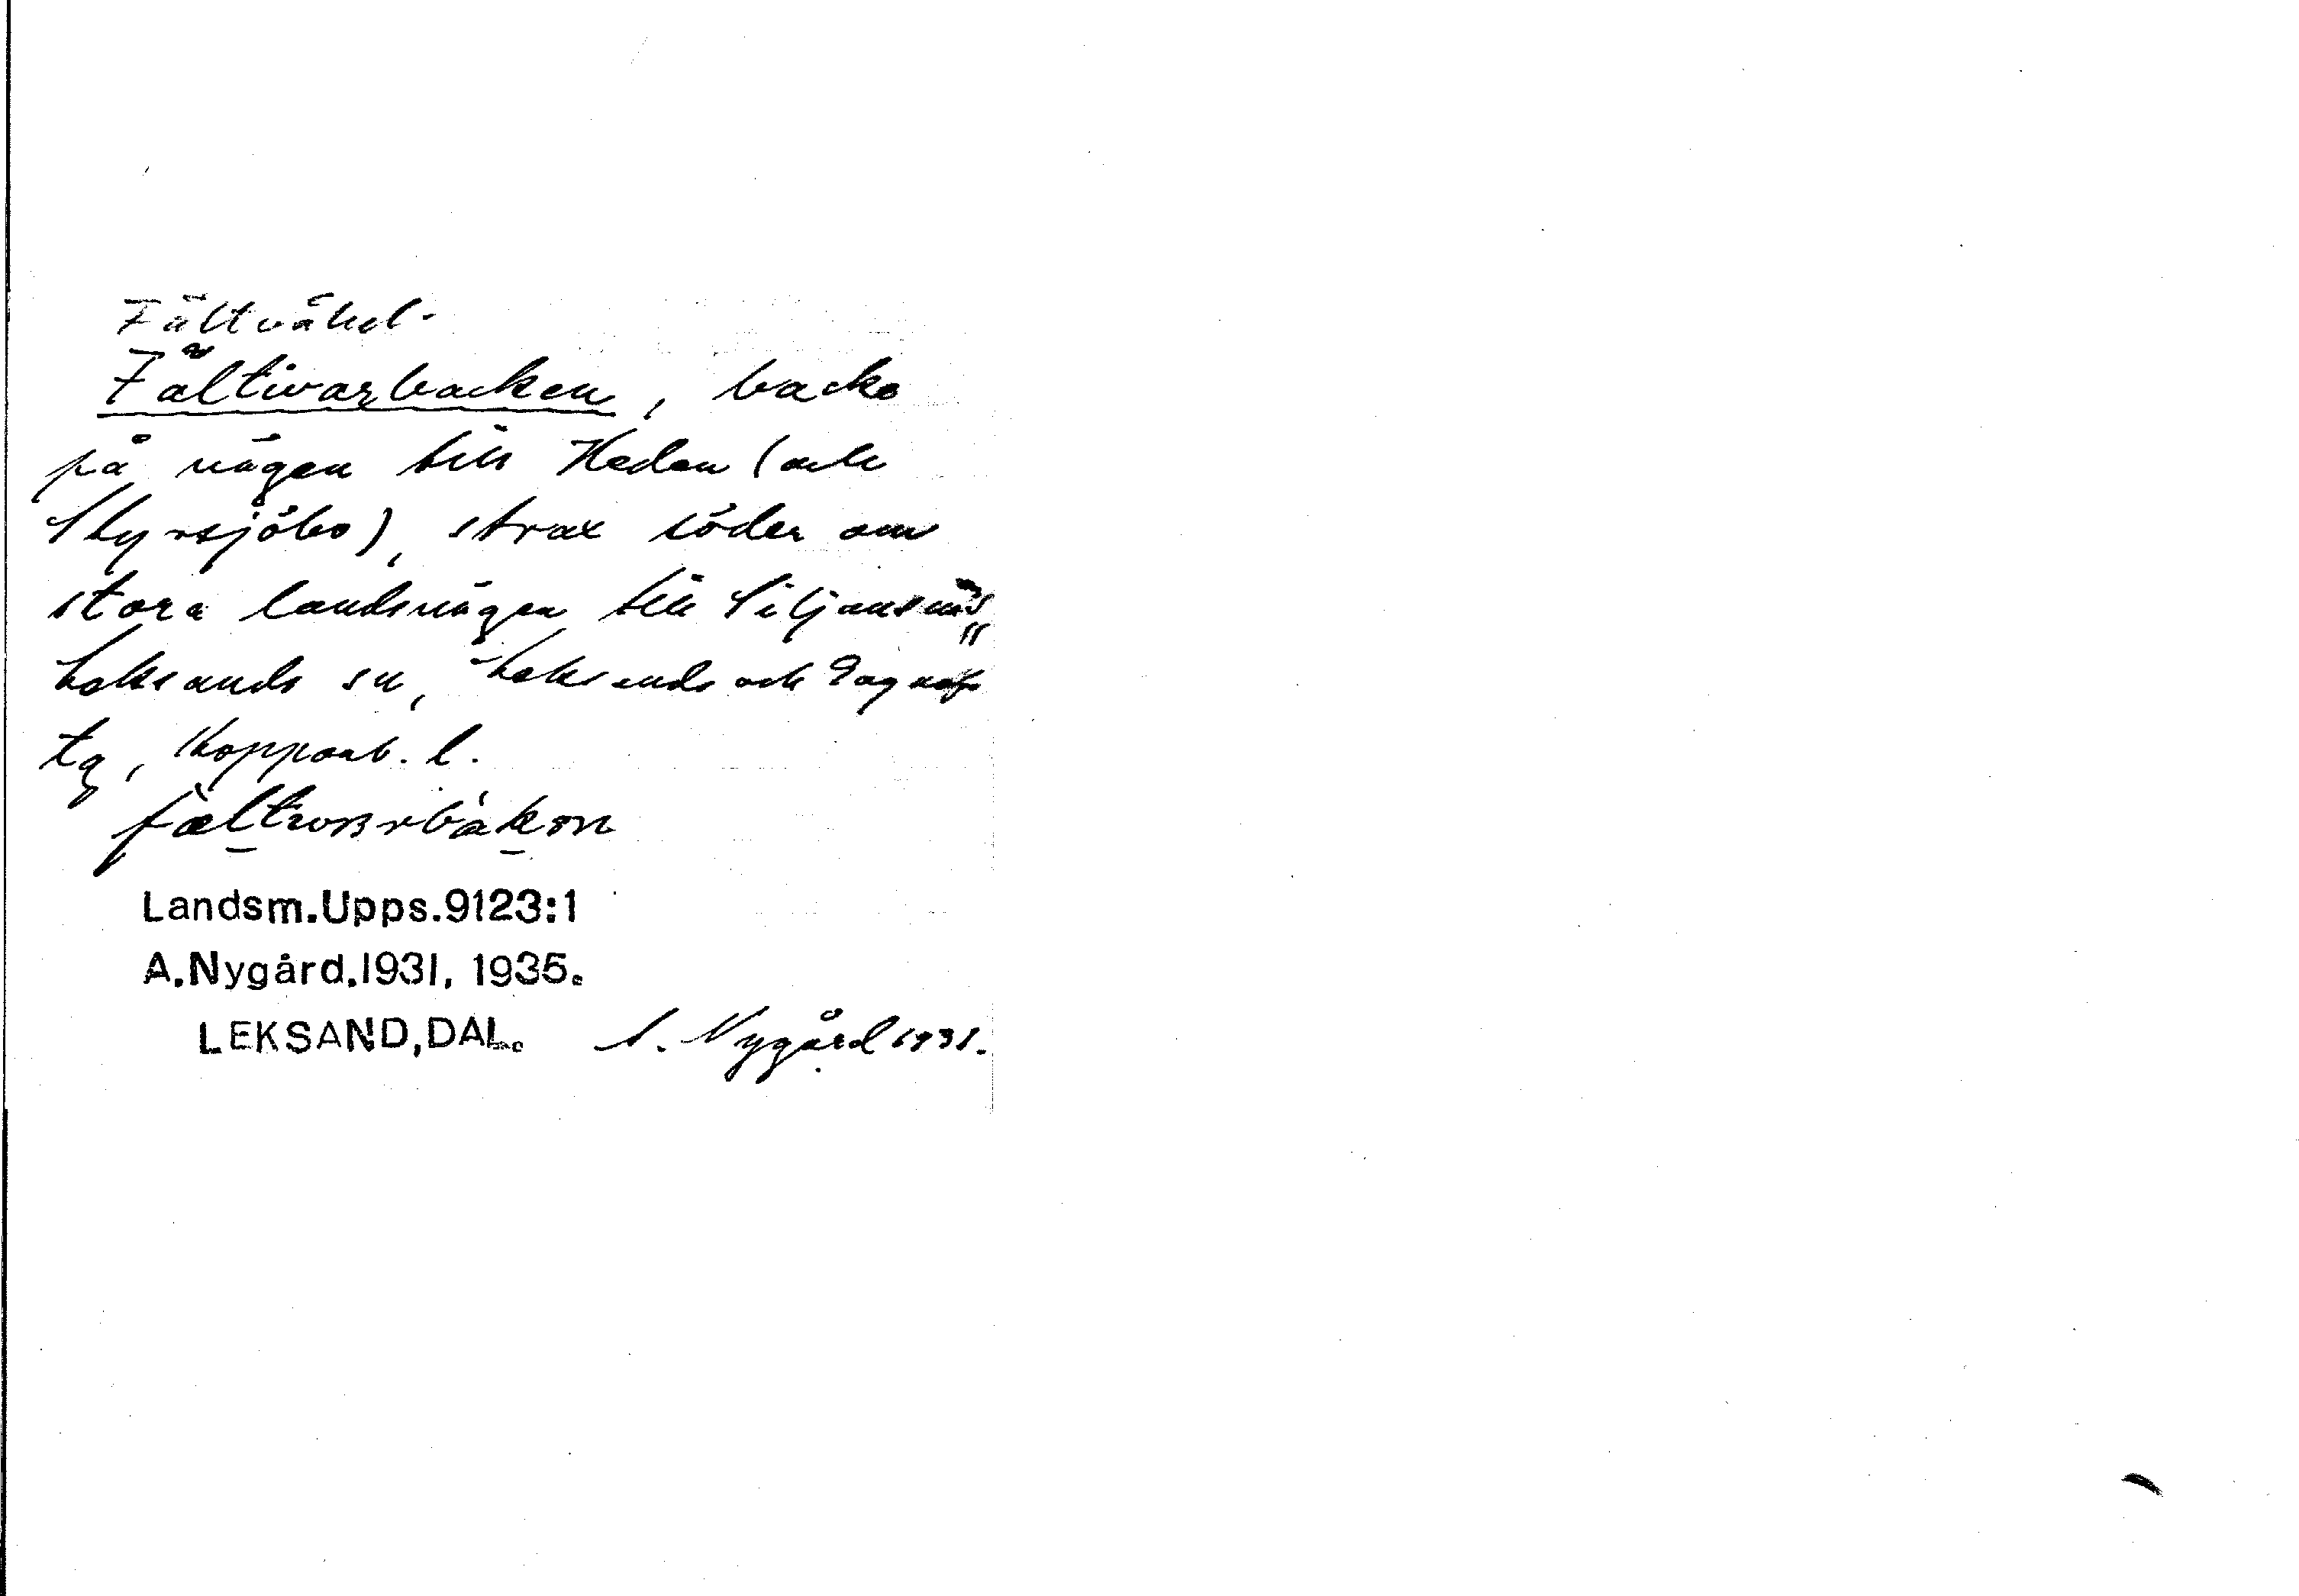 Fältväbel-
Fältivarbacken, backe
på vägen till Heden (och
Styrsjöbo), strax söder om
stora landsvägen till Siljansnäs,
Leksands sn, Leksands och Gagnefs
tg, Kopparb. l.
Landsm.Upps.9123:1
A.Nygård.1931, 1935.
LEKSAND,DAL. A. Nygård 1931.